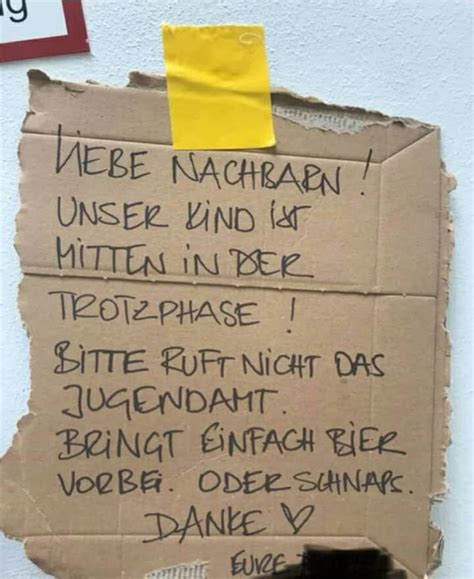 ng
LIEBE NACHBARN!
UNSER KIND IST
MITTEN IN DER
TROTZPHASE!
BITTE RUFT NICHT DAS
JUGENDAMT.
BRINGT EINFACH BIER
VORBEI. ODER SCHNAPS.
DANKE ♡
EURE